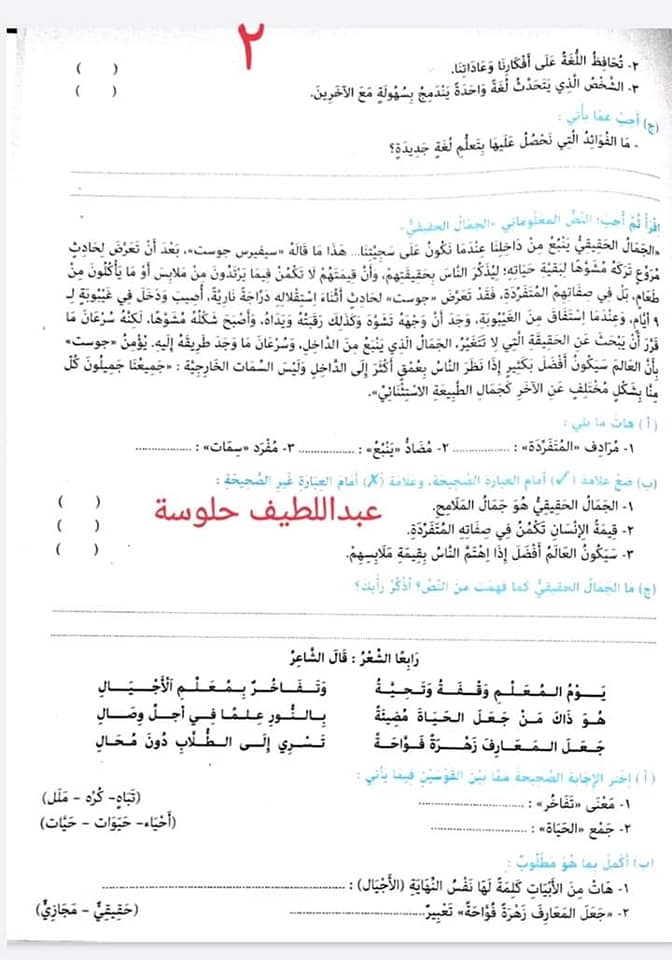 ٢
٢- تُحَافِظُ اللُّغَةُ عَلَى أَفْكَارِنَا وَعَادَاتِنَا. ( )
٣- الشَّخْصُ الَّذِي يَتَحَدَّثُ لُغَةً وَاحِدَةً يَنْدَمِجُ بِسُهُولَةٍ مَعَ الآخَرِينَ. ( )
(ج) أَجِبْ عَمَّا يَأْتِي :
- مَا الْفَوَائِدُ الَّتِي نَحْصُلُ عَلَيْهَا بِتَعَلُّمِ لُغَةٍ جَدِيدَةٍ؟
اقْرَأْ ثُمَّ أَجِبْ: النَّصُّ المَعْلُومَاتِي «الجَمَالُ الحَقِيقِيُّ»
«الْجَمَالُ الْحَقِيقِيُّ يَنْبُعُ مِنْ دَاخِلِنَا عِنْدَمَا نَكُونُ عَلَى سَجِيَّتِنَا... هَذَا مَا قَالَهُ «سيفيرس جوست»، بَعْدَ أَنْ تَعَرَّضَ لِحَادِثٍ
مُرَوِّعٍ تَرَكَهُ مُشَوَّهًا لِبَقِيَّةِ حَيَاتِهِ؛ لِيُذَكِّرَ النَّاسَ بِحَقِيقَتِهِمْ، وَأَنَّ قِيمَتَهُمْ لَا تَكْمُنُ فِيمَا يَرْتَدُونَ مِنْ مَلَابِسَ أَوْ مَا يَأْكُلُونَ مِنْ
طَعَامٍ، بَلْ فِي صِفَاتِهِمُ المُتَفَرِّدَةِ، فَقَدْ تَعَرَّضَ «جوست» لِحَادِثٍ أَثْنَاءَ اسْتِقْلَالِهِ دَرَّاجَةً نَارِيَّةً، أُصِيبَ وَدَخَلَ فِي غَيْبُوبَةٍ لِـ
٩ أَيَّامٍ، وَعِنْدَمَا اسْتَفَاقَ مِنَ الْغَيْبُوبَةِ، وَجَدَ أَنَّ وَجْهَهُ تَشَوَّهَ وَكَذَلِكَ رَقَبَتُهُ وَيَدَاهُ، وَأَصْبَحَ شَكْلُهُ مُشَوَّهًا. لَكِنَّهُ سُرْعَانَ مَا
قَرَّرَ أَنْ يَبْحَثَ عَنِ الحَقِيقَةِ الَّتِي لَا تَتَغَيَّرُ، الجَمَالُ الَّذِي يَنْبُعُ مِنَ الدَّاخِلِ، وَسُرْعَانَ مَا وَجَدَ طَرِيقَهُ إِلَيهِ. يُؤْمِنُ «جوست»
بِأَنَّ الْعَالَمَ سَيَكُونُ أَفْضَلَ بِكَثِيرٍ إِذَا نَظَرَ النَّاسُ بِعُمْقٍ أَكْثَرَ إِلَى الدَّاخِلِ وَلَيْسَ السِّمَاتِ الخَارِجِيَّةِ : «جَمِيعُنَا جَمِيلُونَ كُلٌّ
مِنَّا بِشَكْلٍ مُخْتَلِفٍ عَنِ الآخَرِ كَجَمَالِ الطَّبِيعَةِ الِاسْتِثْنَائِيِّ».
(أ) هَاتْ مَا يَلِي :
١- مُرَادِفَ «الْمُتَفَرِّدَةِ» : ................ ٢- مُضَادَّ «يَنْبُعُ» : ................ ٣- مُفْرَدَ «سِمَات» : ................
(ب) ضَعْ عَلَامَةَ (✓) أَمَامَ العِبَارَةِ الصَّحِيحَةِ، وَعَلَامَةَ (✗) أَمَامَ العِبَارَةِ غَيْرِ الصَّحِيحَةِ :
١- الْجَمَالُ الحَقِيقِيُّ هُوَ جَمَالُ المَلَامِحِ. ( )
عبداللطيف حلوسة
٢- قِيمَةُ الإِنْسَانِ تَكْمُنُ فِي صِفَاتِهِ المُتَفَرِّدَةِ. ( )
٣- سَيَكُونُ العَالَمُ أَفْضَلَ إِذَا اهْتَمَّ النَّاسُ بِقِيمَةِ مَلَابِسِهِمْ. ( )
(ج) مَا الجَمَالُ الحَقِيقِيُّ كَمَا فَهِمْتَ مِنَ النَّصِّ؟ اُذْكُرْ رَأْيَكَ؟
رَابِعًا الشِّعْرُ : قَالَ الشَّاعِرُ
يَــوْمُ الـمُـعَـلِّـمِ وَقْـفَـةٌ وَتَـحِـيَّـةٌ وَتَـفَـاخُـرٌ بِـمُـعَـلِّـمِ الْأَجْـيَـالِ
هُـوَ ذَاكَ مَـنْ جَـعَـلَ الْـحَـيَـاةَ مُضِيئَةً بِـالـنُّـورِ عِـلْـمًـا فِـي أَجَـلِّ وِصَـالِ
جَـعَـلَ الْـمَـعَـارِفَ زَهْـرَةً فَـوَّاحَـةً تَـسْـرِي إِلَـى الـطُّـلَّابِ دُونَ مُـحَـالِ
(أ) اخْتَرِ الإِجَابَةَ الصَّحِيحَةَ مِمَّا بَيْنَ القَوْسَيْنِ فِيمَا يَأْتِي :
١- مَعْنَى «تَفَاخُر» : ................ (تَبَاهٍ- كُرْه - مَلَل)
٢- جَمْعُ «الحَيَاة» : ................ (أَحْيَاء- حَيَوَات - حَيَّات)
(ب) أَكْمِلْ بِمَا هُوَ مَطْلُوبٌ :
١- هَاتْ مِنَ الأَبْيَاتِ كَلِمَةً لَهَا نَفْسُ النِّهَايَةِ (الأَجْيَال) : ................
٢- «جَعَلَ المَعَارِفَ زَهْرَةً فَوَّاحَةً» تَعْبِيرٌ ................ (حَقِيقِيٌّ - مَجَازِيٌّ)